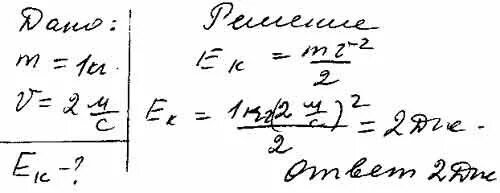 Дано:
m = 1кг.
V = 2 м/с
Eк - ?
Решение
Eк = mv²/2
Eк = 1кг(2 м/с)²/2 = 2Дж.
ответ 2Дж